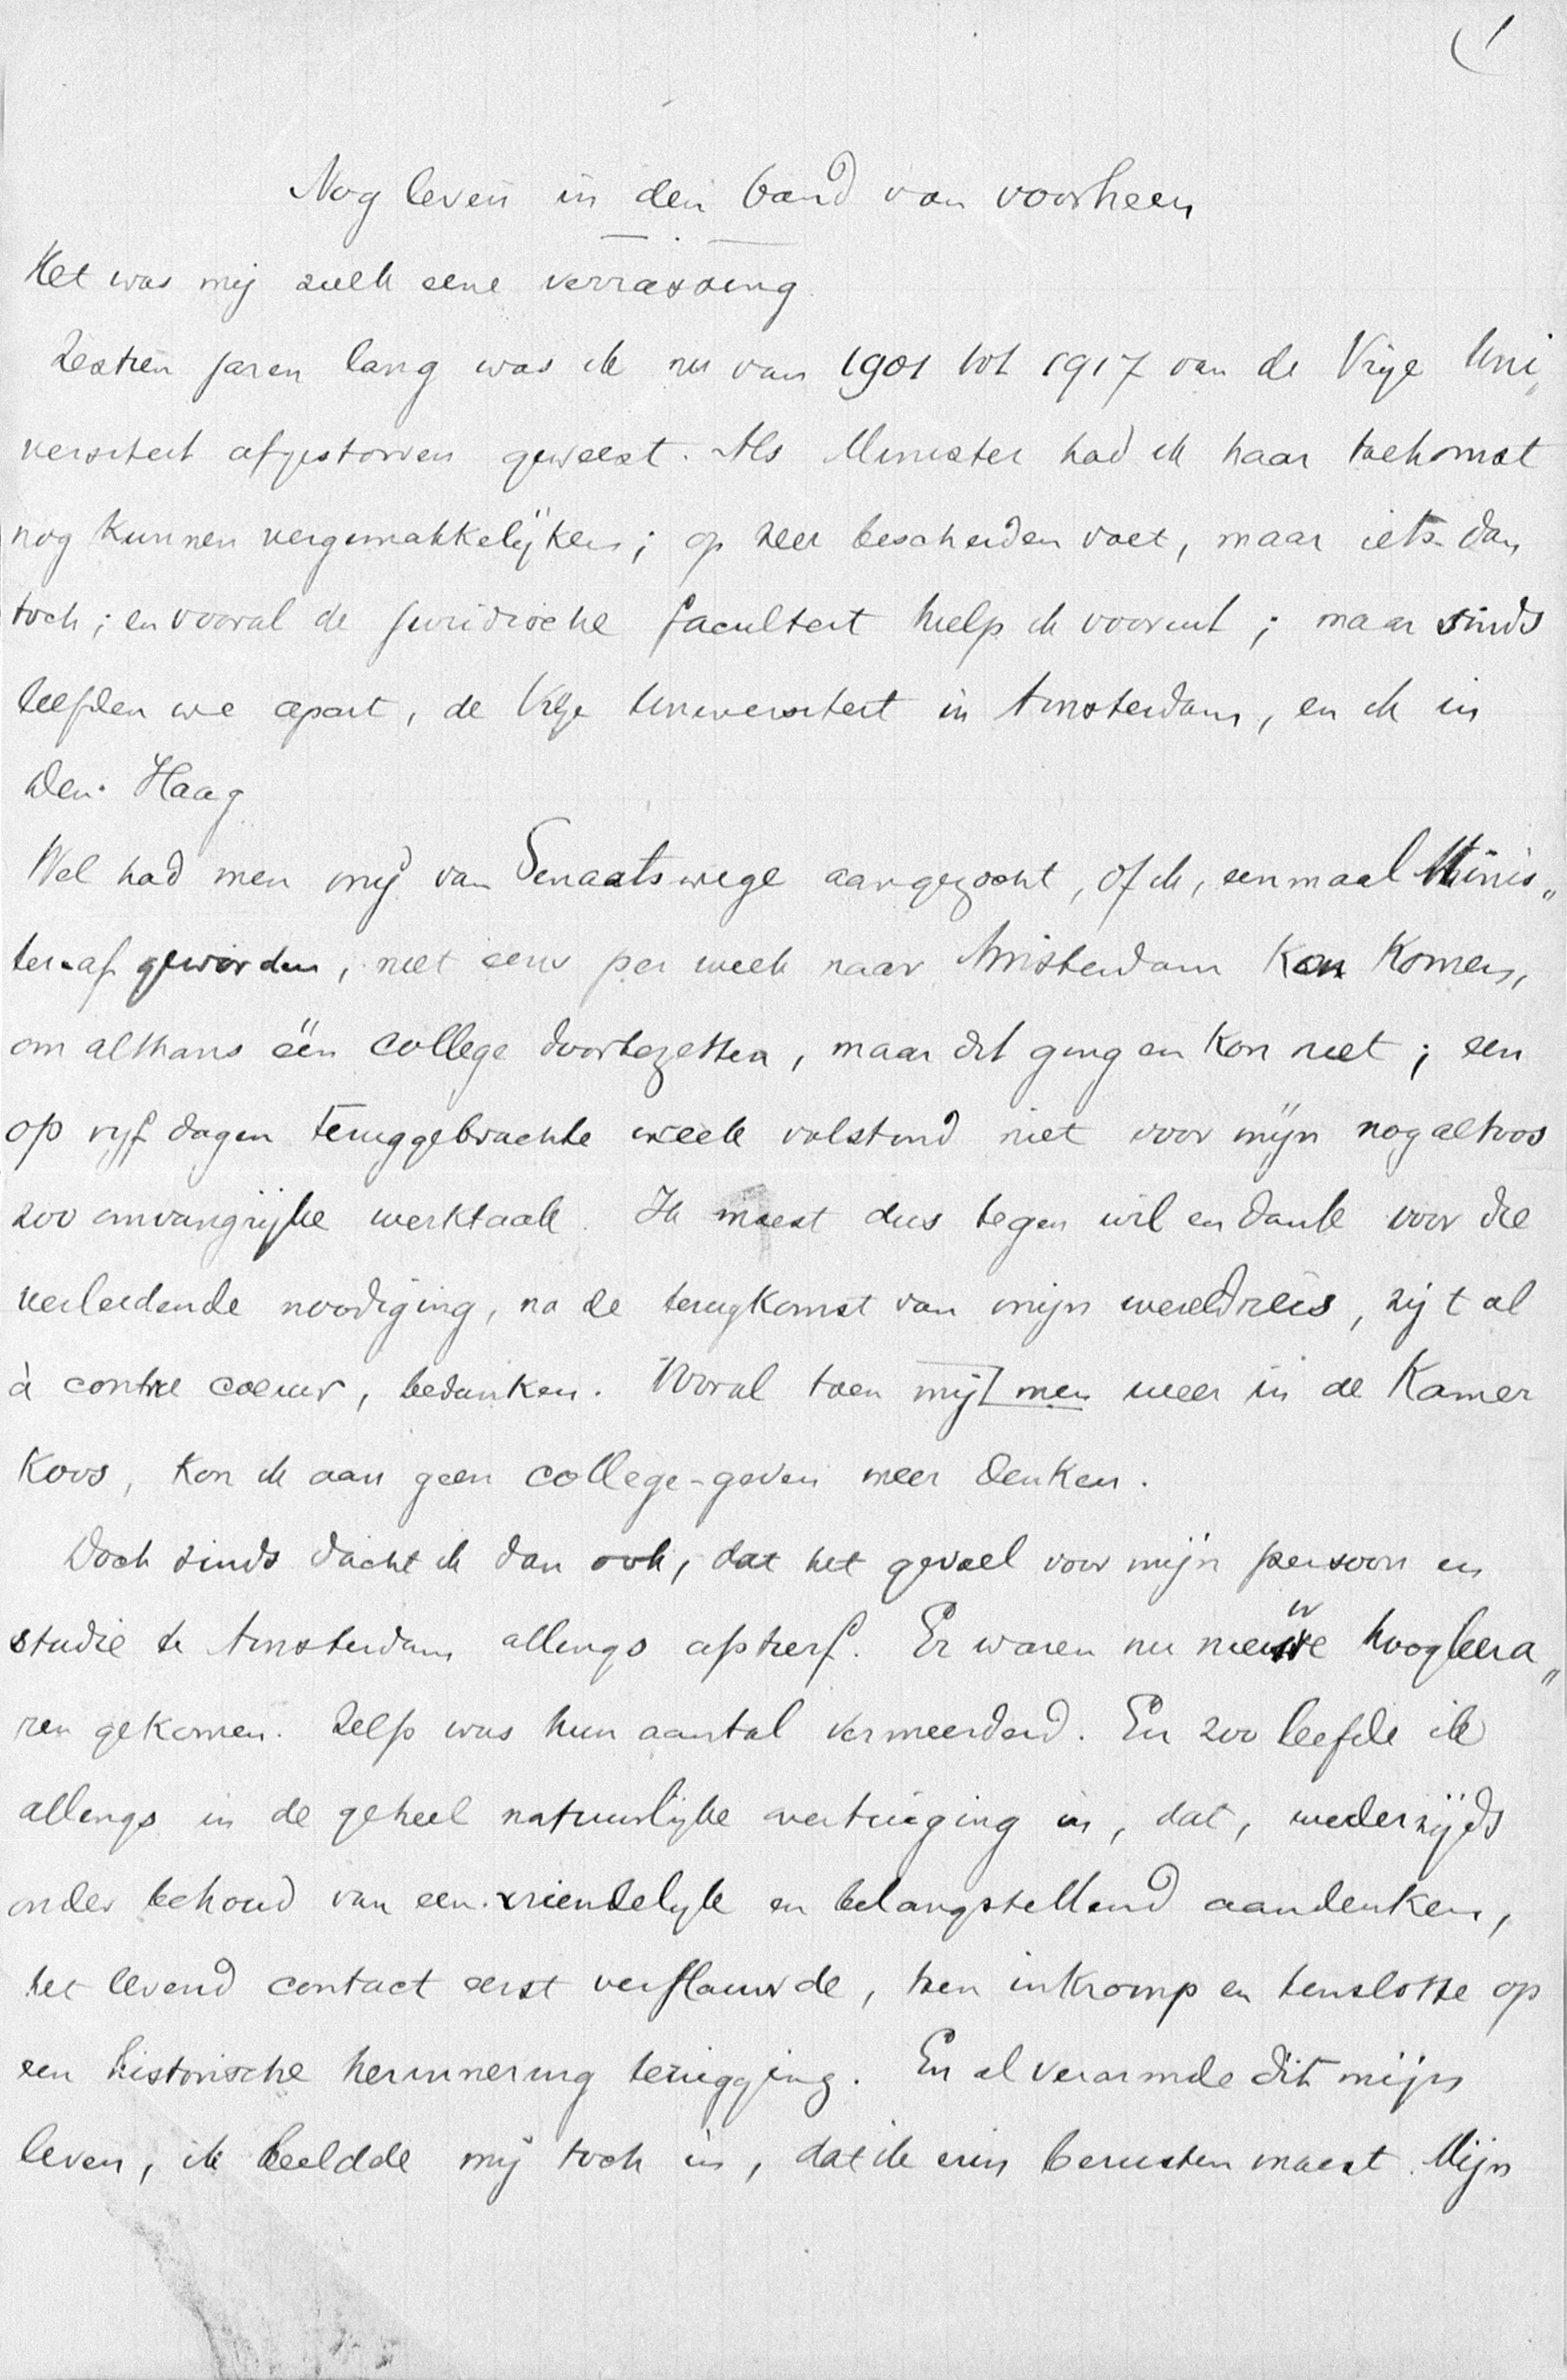 1
Nog leven in den band van voorheen
Het was mij zulk eene verrassing.
Zestien jaren lang was ik nu van 1901 tot 1917 van de Vrije Uni„
versiteit afgestorven geweest. Als Minister had ik haar toekomst
nog kunnen vergemakkelijken; op zeer bescheiden voet, maar iets dan
toch; en vooral de juridische faculteit hielp ik vooruit; maar sinds
leefden we apart, de Vrije Universiteit in Amsterdam, en ik in
Den Haag
Wel had men mij van Senaatswege aangezocht, of ik, eenmaal Minis„
ter-af geworden, niet eens per week naar Amsterdam kon komen,
om althans één college doortezetten, maar dit ging en kon niet; een
op vijf dagen teruggebrachte week volstond niet voor mijn nog altoos
zoo omvangrijke werktaak. Ik moest dus tegen wil en dank voor die
verleidende noodiging, na de terugkomst van mijn wereldreis, zij t al
à contre coeur, bedanken. Vooral toen mij men weer in de Kamer
koos, kon ik aan geen college-geven meer denken.
Doch sinds dacht ik dan ook, dat het gevoel voor mijn persoon en
studie te Amsterdam allengs afstierf. Er waren nu nieuwe hooglera„
ren gekomen. Zelfs was hun aantal vermeerderd. En zoo leefde ik
allengs in de geheel natuurlijke overtuiging in, dat, wederzijds
onder behoud van een vriendelijk en belangstellend aandenken,
het levend contact eerst verflauwde, toen inkromp en tenslotte op
een historische herinnering terugging. En al verarmde dit mijn
leven, ik beeldde mij toch in, dat ik erin berusten moest. Mijn